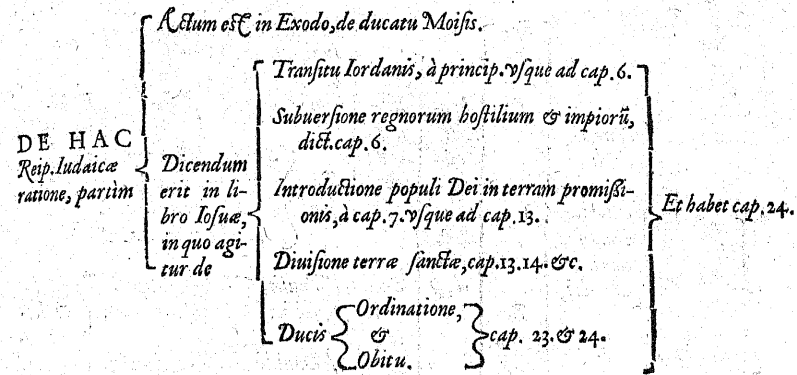 Actum est in Exodo, de ducatu Moisis.
DE HAC
Reip. Iudaicæ
ratione, partim
Dicendum
erit in li-
bro Iosuæ,
in quo agi-
tur de
Transitu Iordanis, à princip. vsque ad cap. 6.
Subuersione regnorum hostilium & impiorũ,
dict. cap. 6.
Introductione populi Dei in terram promissi-
onis, à cap. 7. vsque ad cap. 13.
Diuisione terræ sanctæ, cap. 13. 14. &c.
Ducis
Ordinatione,
&
Obitu.
cap. 23. & 24.
Et habet cap. 24.